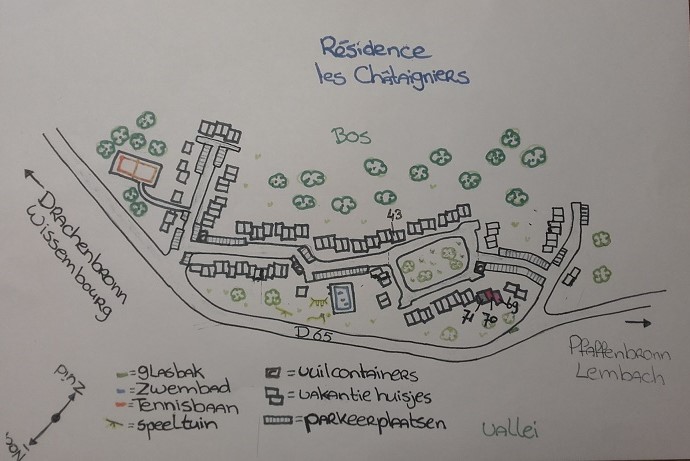 Résidence
les Châtaigniers
Bos
43
Drachenbronn
Wissembourg
71 70 69
D65
Pfaffenbronn
Lembach
= glasbak
= Zwembad
= Tennisbaan
= speeltuin
= vuilcontainers
= vakantie huisjes
= parkeerplaatsen
vallei
Zuid